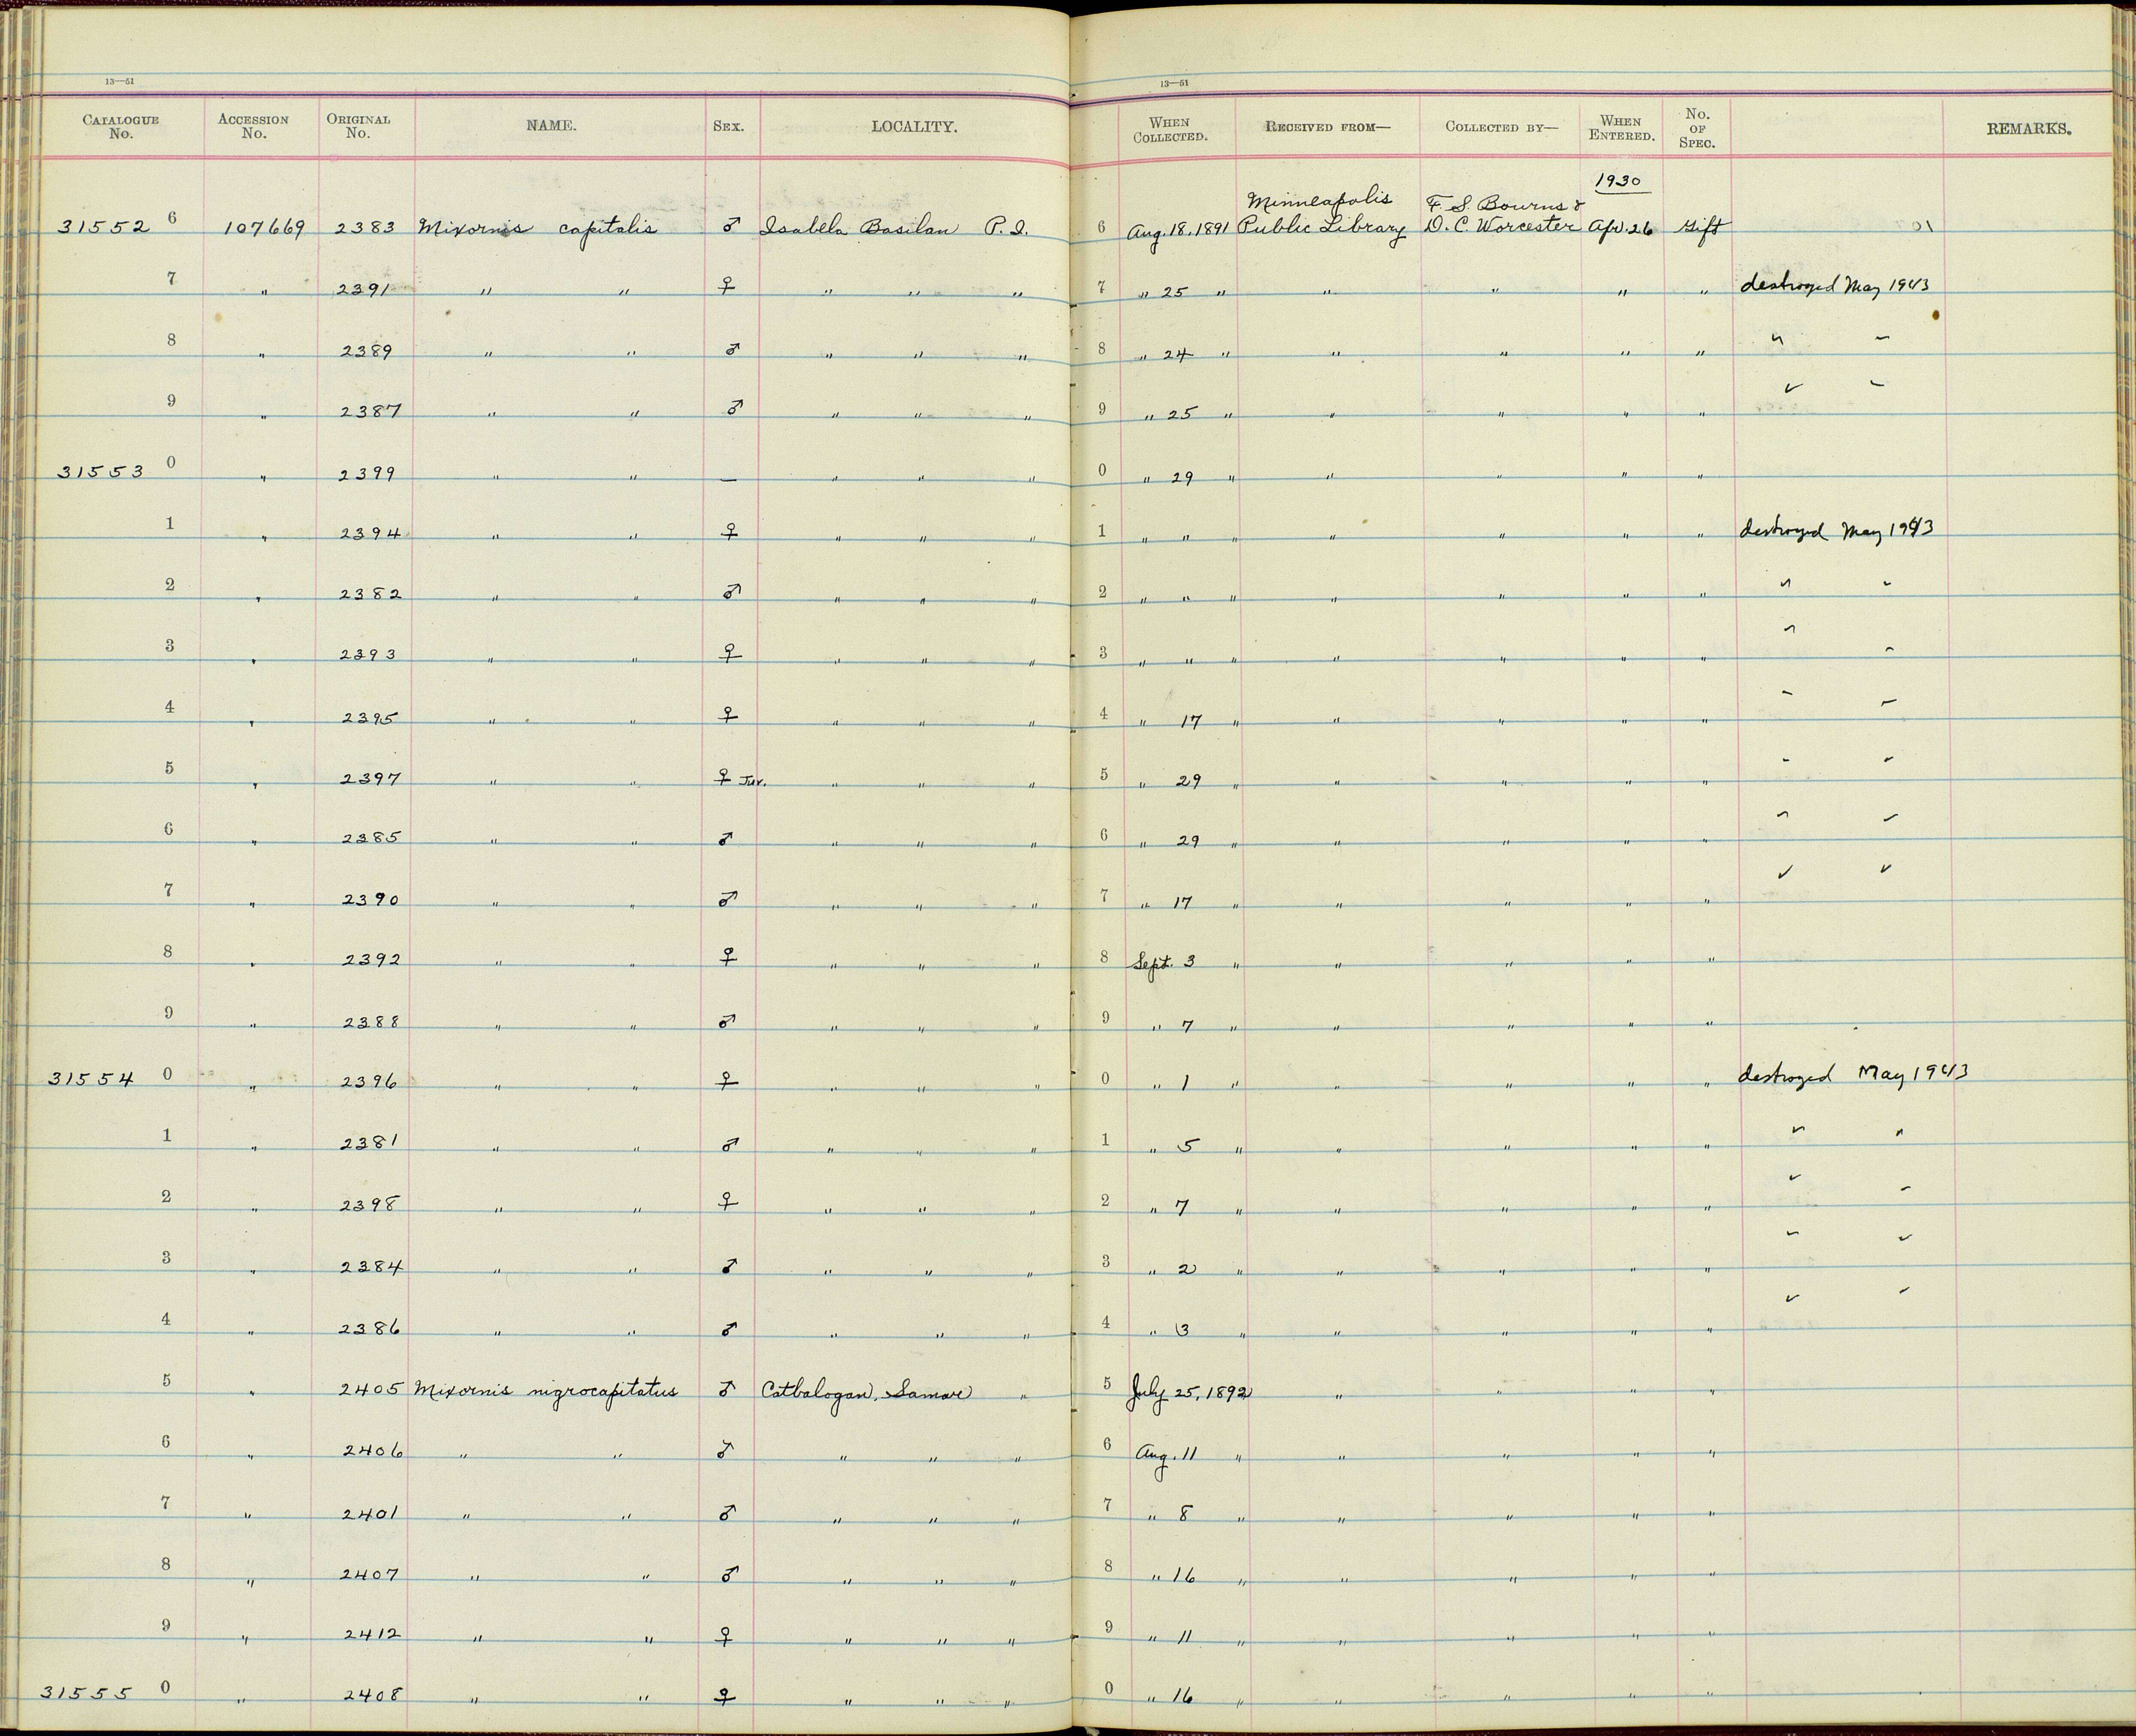 13—51
13—51
CATALOGUE No. ACCESSION No. ORIGINAL No. NAME. SEX. LOCALITY. WHEN COLLECTED. RECEIVED FROM— COLLECTED BY— WHEN ENTERED. No. OF SPEC. REMARKS.
1930
31552 6 107669 2383 Mixornis capitalis ♂ Isabela Basilan P. I. 6 Aug. 18, 1891 Minneapolis Public Library F. S. Bourns & D. C. Worcester Apr. 26 Gift
7 " 2391 " " ♀ " " " 7 " 25 " " " " " destroyed May 1943
8 " 2389 " " ♂ " " " 8 " 24 " " " " " " "
9 " 2387 " " ♂ " " " 9 " 25 " " " " " " "
31553 0 " 2399 " " — " " " 0 " 29 " " " " "
1 " 2394 " " ♀ " " " 1 " " " " " " " destroyed May 1943
2 " 2382 " " ♂ " " " 2 " " " " " " " " "
3 " 2393 " " ♀ " " " 3 " " " " " " " " "
4 " 2395 " " ♀ " " " 4 " 17 " " " " " " "
5 " 2397 " " ♀ Juv. " " " 5 " 29 " " " " " " "
6 " 2385 " " ♂ " " " 6 " 29 " " " " " " "
7 " 2390 " " ♂ " " " 7 " 17 " " " " " " "
8 " 2392 " " ♀ " " " 8 Sept. 3 " " " " "
9 " 2388 " " ♂ " " " 9 " 7 " " " " "
31554 0 " 2396 " " ♀ " " " 0 " 1 " " " " " destroyed May 1943
1 " 2381 " " ♂ " " " 1 " 5 " " " " " " "
2 " 2398 " " ♀ " " " 2 " 7 " " " " " " "
3 " 2384 " " ♂ " " " 3 " 2 " " " " " " "
4 " 2386 " " ♂ " " " 4 " 3 " " " " " " "
5 " 2405 Mixornis nigrocapitatus ♂ Catbalogan, Samar " 5 July 25, 1892 " " " "
6 " 2406 " " ♂ " " " 6 Aug. 11 " " " " "
7 " 2401 " " ♂ " " " 7 " 8 " " " " "
8 " 2407 " " ♂ " " " 8 " 16 " " " " "
9 " 2412 " " ♀ " " " 9 " 11 " " " " "
31555 0 " 2408 " " ♀ " " " 0 " 16 " " " " "